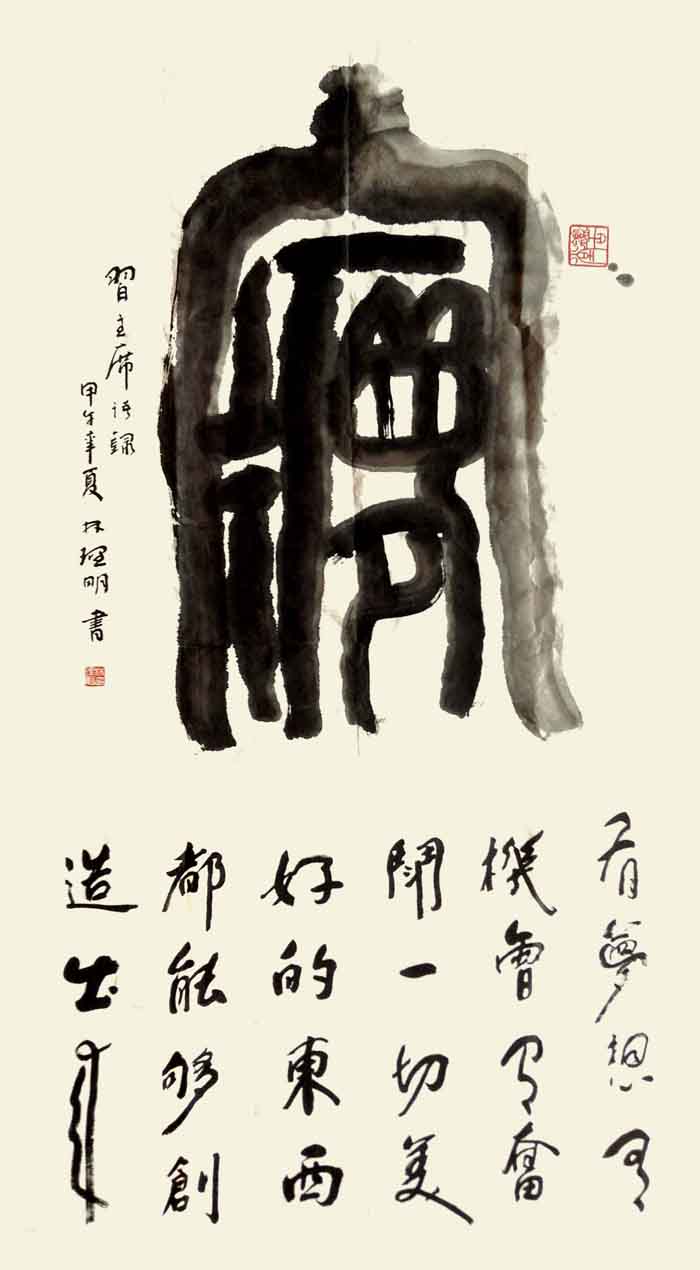 㝱
習主席语録
甲午年夏林理明書
有夢想有
機會有奮
鬥一切美
好的東西
都能够創
造出來